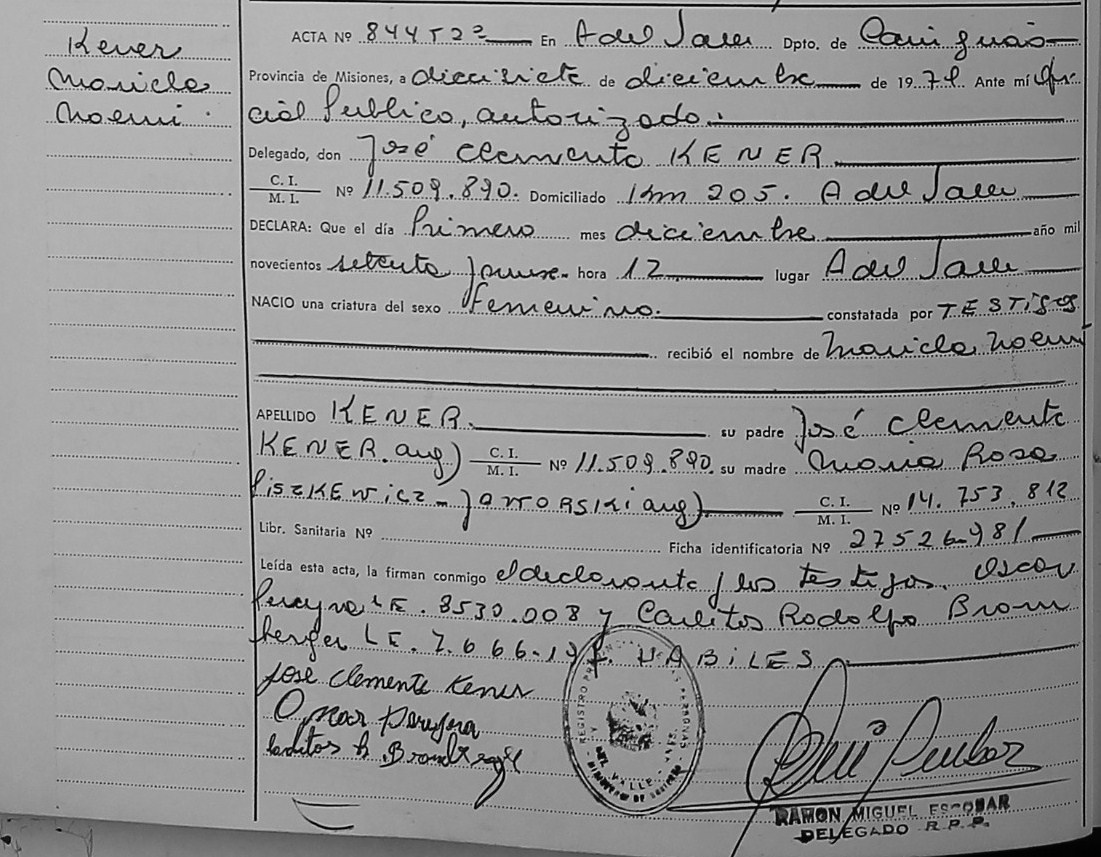 Kener
Mariela
Noemi
ACTA Nº 844T22 En A del Valle Dpto. de Cainguás
Provincia de Misiones, a diecisiete de diciembre de 19.79. Ante mí Ofi
cial Publico, autorizado.
Delegado, don José Clemente KENER
C. I.
M. I. Nº 11.509.890. Domiciliado Km 205. A del Valle
DECLARA: Que el día Primero mes diciembre año mil
novecientos setenta y nueve hora 12 lugar A del Valle
NACIO una criatura del sexo femenino. constatada por TESTIGOS
recibió el nombre de Mariela Noemi
APELLIDO KENER. su padre José Clemente
KENER. arg) C. I.
M. I. Nº 11.509.890 su madre Maria Rosa
PiszKEWicz - JaWORSKi arg) C. I.
M. I. Nº 14.753.812
Libr. Sanitaria Nº Ficha identificatoria Nº 27526.981
Leída esta acta, la firman conmigo el declarante y los testigos. Oscar
Pereyra LE. 8530.008 y Carlitos Rodolfo Brom
berger LE. 7.666.19 HABILES
Jose Clemente Kener
Omar Pereyra
Carlitos R.
REGISTRO
DEL VALLE
RAMON MIGUEL ESCOBAR
DELEGADO R.P.P.